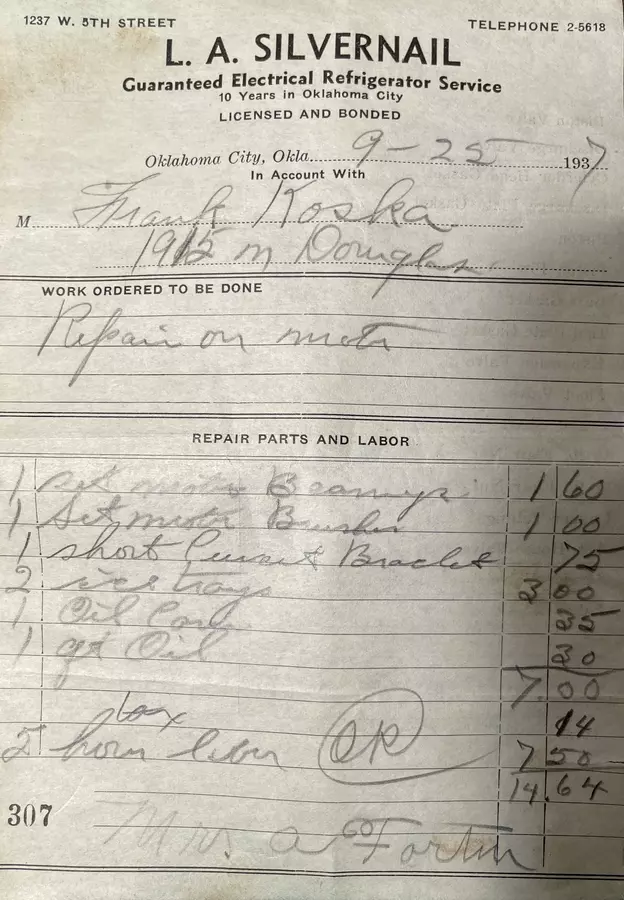 1237 W. 5TH STREET TELEPHONE 2-5618
L. A. SILVERNAIL
Guaranteed Electrical Refrigerator Service
10 Years in Oklahoma City
LICENSED AND BONDED
Oklahoma City, Okla. 9-25 1937
In Account With
M Frank Koska
1915 n Douglas
WORK ORDERED TO BE DONE
Repair on motor
REPAIR PARTS AND LABOR
1 set motor Bearings 1 60
1 Set motor Brushes 1 00
1 short Bracket 75
2 ice trays 3 00
1 Oil 35
1 qt Oil 30
7.00
tax 14
5 hour labor OK 7 50
14.64
307
Mrs. a